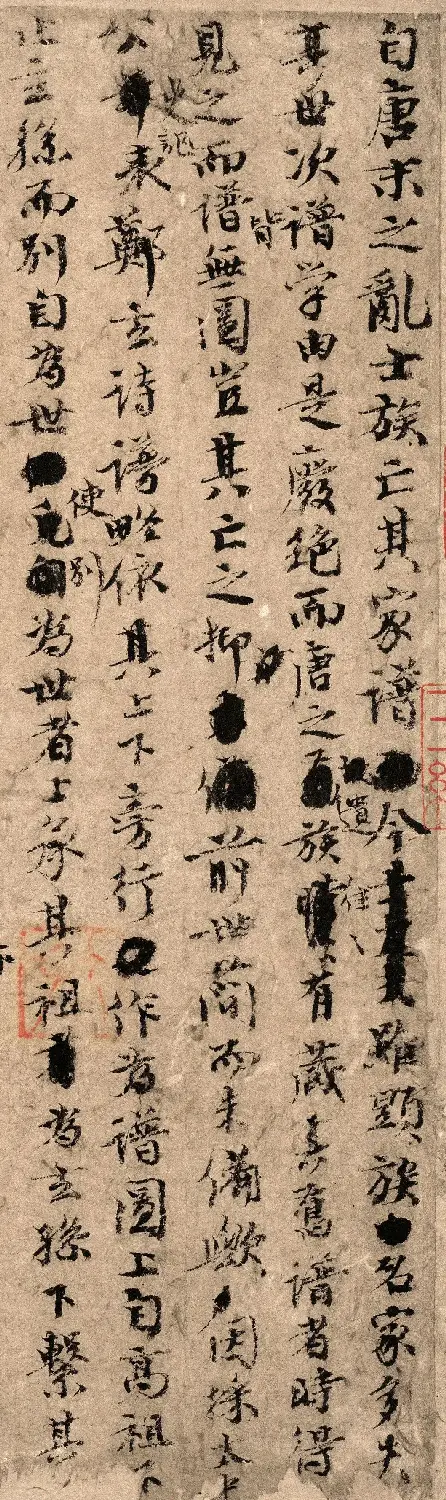 自唐末之亂士族亡其家譜今雖顯族名家多失
其世次譜学由是廢絶而唐之遺族往往有藏其舊譜者時得
見之而譜皆無圖豈其亡之抑前世簡而未備歟因採太史
公史記表鄭玄詩譜略依其上下旁行作為譜圖上自高祖下
止玄孫而別自為世使別為世者上承其祖為玄孫下繫其